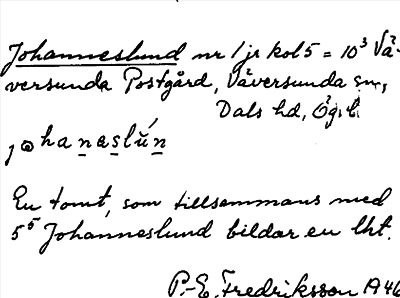 Johanneslund nr 1 jr kol 5 = 10³ Vä-
versunda Postgård, Väversunda sn,
Dals hd, Ög. l.
johanaslún
En tomt, som tillsammans med
5⁵ Johanneslund bildar en lht.
P.-E. Fredriksson A 46